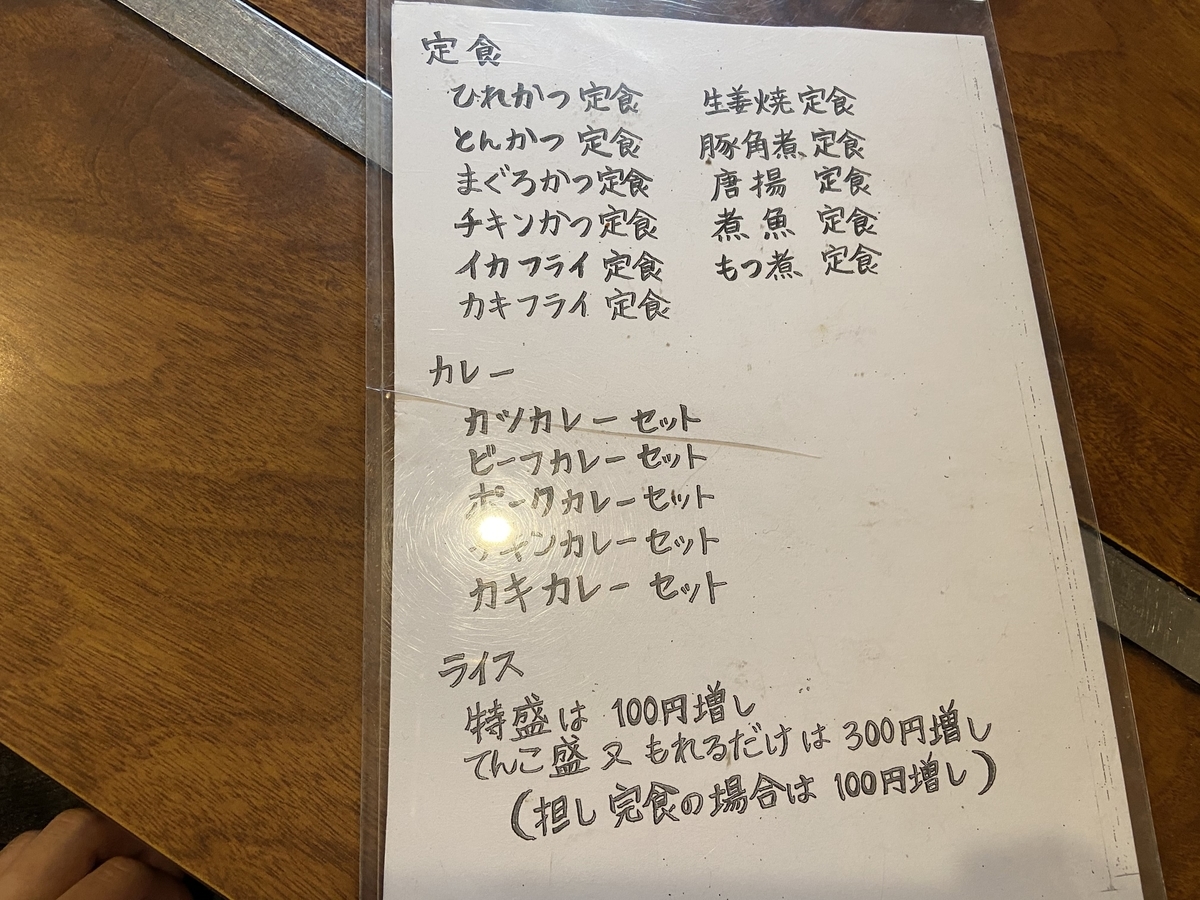 定食
ひれかつ定食
とんかつ 定食
まぐろかつ定食
チキンかつ定食
イカフライ 定食
カキフライ 定食
生姜焼定食
豚角煮 定食
唐揚 定食
煮魚 定食
もつ煮 定食
カレー
カツカレーセット
ビーフカレーセット
ポークカレーセット
チキンカレーセット
カキカレーセット
ライス
特盛は 100円増し
てんこ盛 又 もれるだけは 300円増し
(担し 完食の場合は 100円増し)